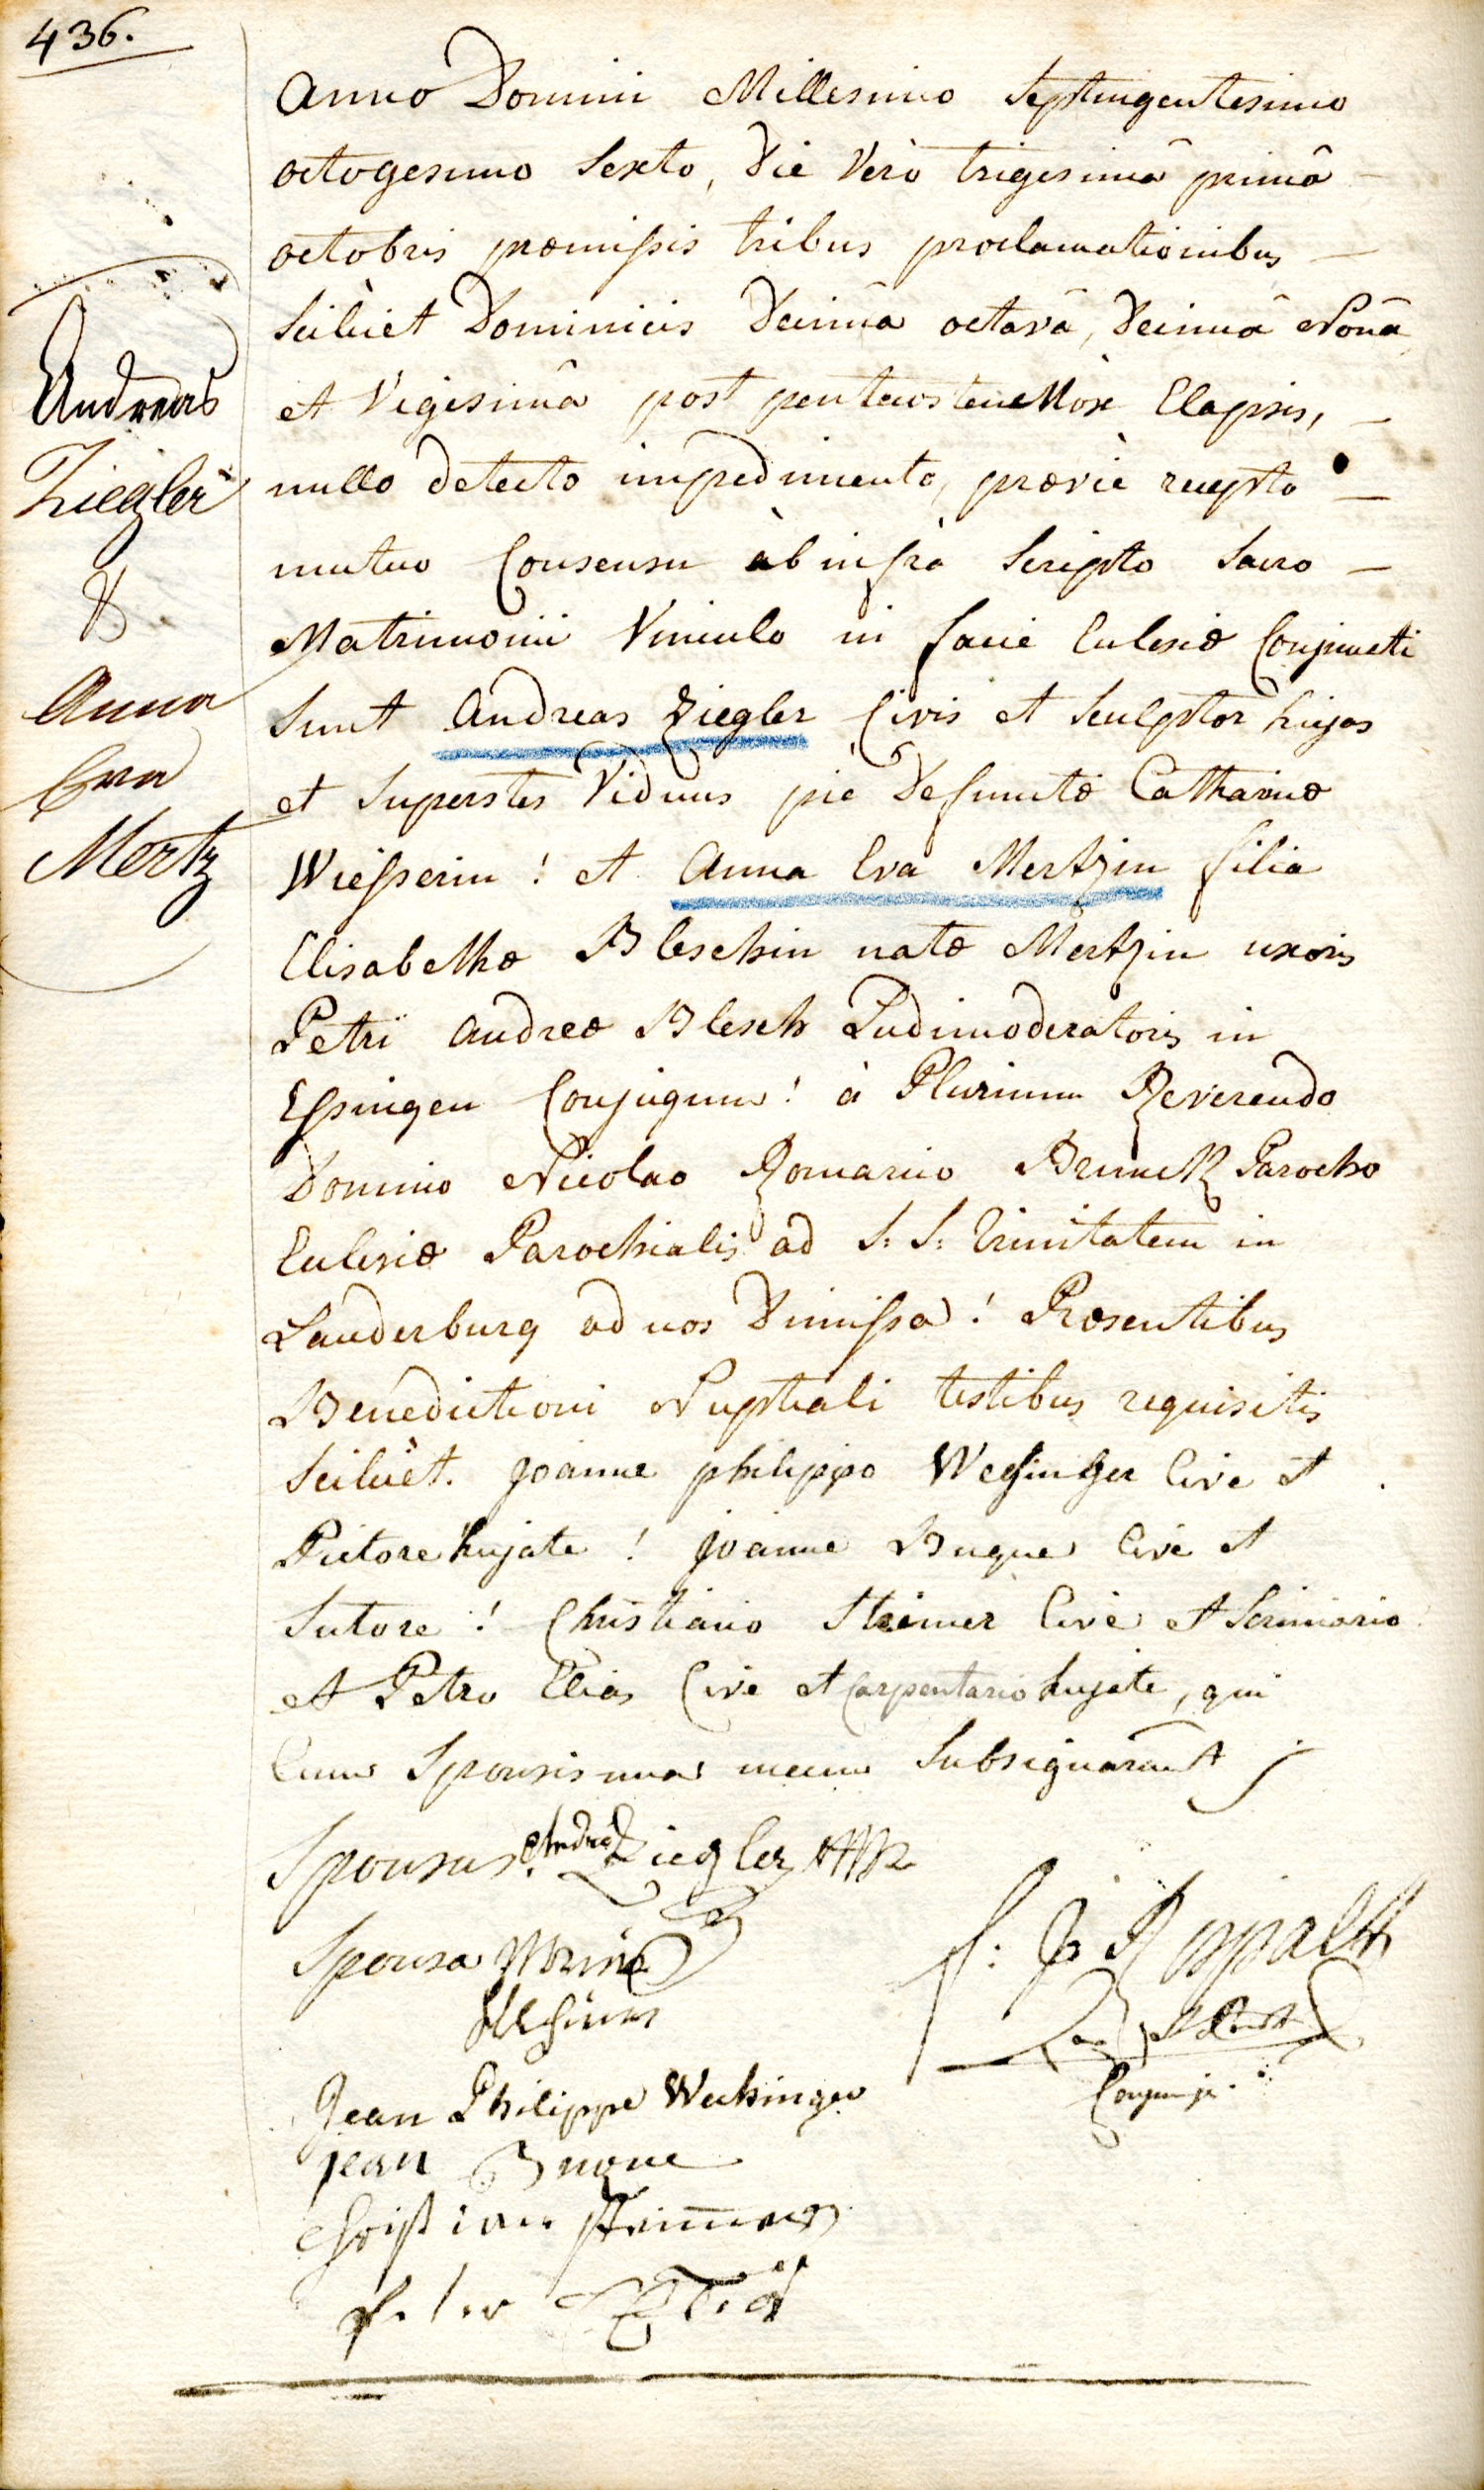 436.
Andreas
Ziegler
&
Anna
Eva
Mertz
Anno Domini Millesimo Septingentesimo
octogesimo Sexto, Die Verò trigesimâ primâ
octobris præmissis tribus proclamationibus
Scilicèt Dominicis Decimâ octavâ, Decimâ Nonâ
et Vigesimâ post pentecosten Mox Elapsis,
nullo detecto impedimento, præviè recepto
mutuo Consensu àb infrà Scripto Sacro
Matrimonii Vinculo in facie Eclesiæ Conjuncti
Sunt Andreas Ziegler Civis et Sculptor hujas
et Superstes Viduus piè Defunctæ Catharinæ
Wiesserin! et Anna Eva Mertzin filia
Elisabethæ Bleschin natæ Mertzin uxoris
Petri Andreæ Blesch Ludimoderatoris in
Essingen Conjugum! à Plurimum Reverendo
Domino Nicolao Romarico Brunck Parocho
Eclesiæ Parochialis ad S: S: Trinitatem in
Lauderburg ad nos Dimissa! Præsentibus
Benedictioni Nuptiali testibus requisitis
Scilicèt. Joanne philippo Wechinger Cive et
Pictore hujate! Joanne Buque Cive et
Sutore! Christiano Steimer Cive et Scriniario
et Petro Elias Cive et Carpentario hujate, qui
Cum Sponsis unà mecum Subsignarunt
Sponsus. Andre Ziegler
Sponsa
Jean Philippe Wechinger
Jean Buque
Christian Steimmer
Peter Elias